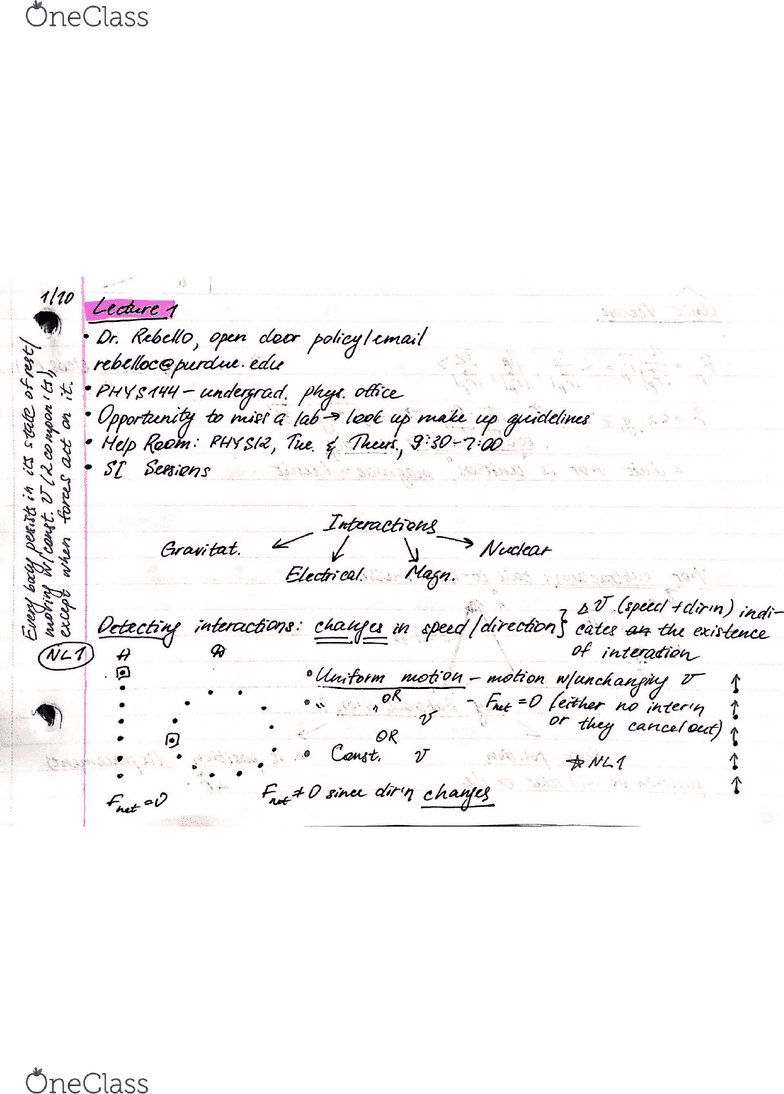 OneClass
1/10
Lecture 1
• Dr. Rebello, open door policy/email
rebelloc@purdue.edu
• PHYS144 – undergrad. phys. office
• Opportunity to miss a lab → look up make up guidelines
• Help Room: PHYS12, Tue. & Thurs., 9:30-7:00
• SI Sessions
Every body persists in its state of rest/
moving w/const. v (2 compon'ts),
except when forces act on it.
NL1
Interactions
Gravitat.
Nuclear
Electrical.
Magn.
Detecting interactions: changes in speed/direction}
Δ v (speed + dir'n) indi-
cates an the existence
of interation
• Uniform motion – motion w/unchanging v
• " " OR v
- Fnet = 0 (either no inter'n
or they cancel out)
OR
• Const. v
☆ NL1
Fnet = 0
Fnet ≠ 0 since dir'n changes
OneClass